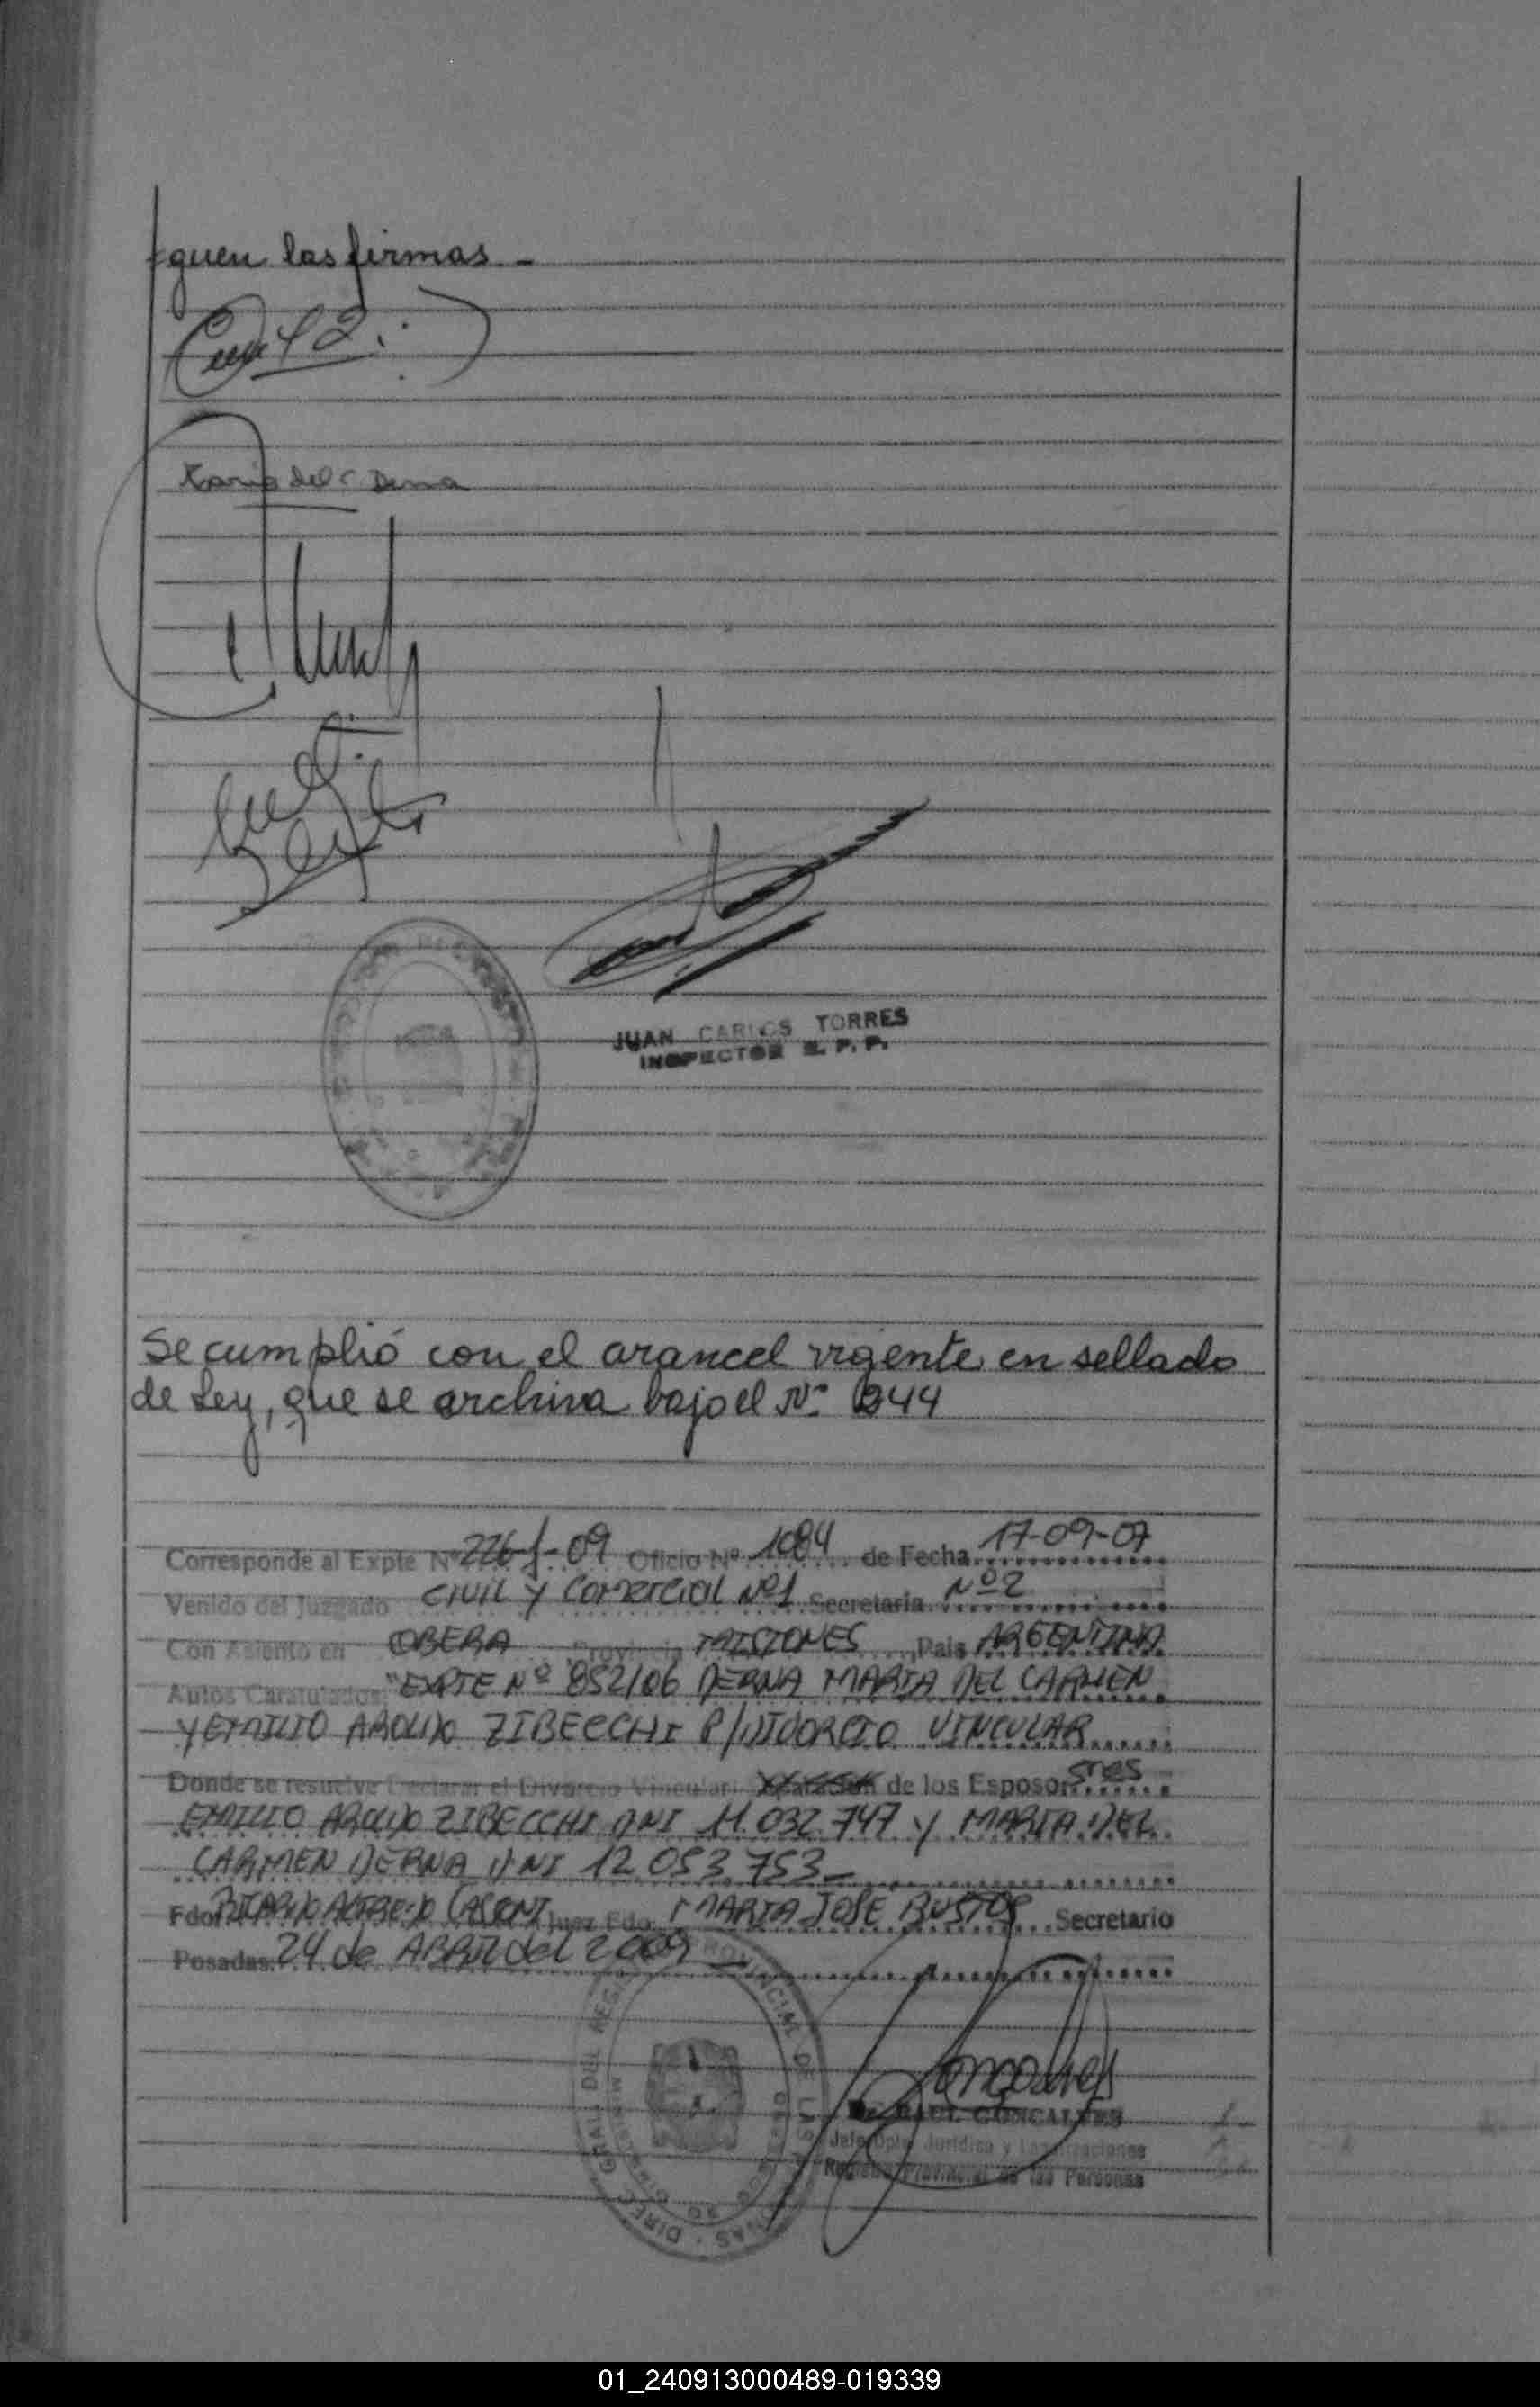 guen las firmas -
Maria del C Derna
JUAN CARLOS TORRES
INSPECTOR R. P. P.
Se cumplió con el arancel vigente en sellado
de Ley, que se archiva bajo el Nº 1244
Corresponde al Expte Nº 226-J-09 Oficio Nº 1084 de Fecha 17-09-07
Venido del Juzgado CIVIL Y COMERCIAL Nº1 Secretaria Nº2
Con Asiento en OBERA Provincia MISIONES, Pais ARGENTINA
Autos Caratulados: "EXPTE Nº 852/06 DERNA MARIA DEL CARMEN
Y EMILIO AROLDO ZIBECCHI P/DIVORCIO VINCULAR
Donde se resuelve Declarar el Divorcio Vincular de los Esposos Sres
EMILIO AROLDO ZIBECCHI DNI 11.032.747 y MARIA DEL
CARMEN DERNA DNI 12.053.753-
Fdo Juez Fdo. MARIA JOSE BUSTOS Secretario
Posadas: 24 de ABRIL del 2009
RAUL GONCALVES
Jefe Dpto Juridico y
Registro Provincial de las Personas
DIREC. GRAL. DEL REGISTRO PROVINCIAL DE LAS PERSONAS
01_240913000489-019339